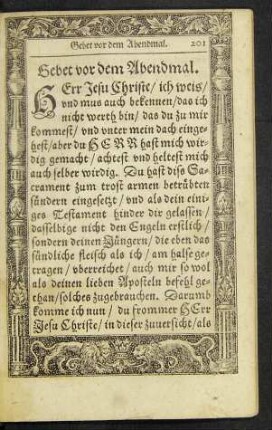 Gebet vor dem Abendmal. 201
Gebet vor dem Abendmal.
HErr Jesu Christe / ich weis /
vnd mus auch bekennen / das ich
nicht werth bin / das du zu mir
kommest / vnd vnter mein dach einge-
hest / aber du HERR hast mich wir-
dig gemacht / achtest vnd heltest mich
auch selber wirdig. Du hast diss Sa-
crament zum trost armen betrübten
sündern eingesetzt / vnd als dein eini-
ges Testament hinder dir gelassen /
dasselbige nicht den Engeln erstlich /
sondern deinen Jüngern / die eben das
sündliche fleisch als ich / am halse ge-
tragen / vberreichet / auch mir so wol
als deinen lieben Aposteln befehl ge-
than / solches zugebrauchen. Darumb
komme ich nun / du frommer HErr
Jesu Christe / in dieser zuuersicht / als